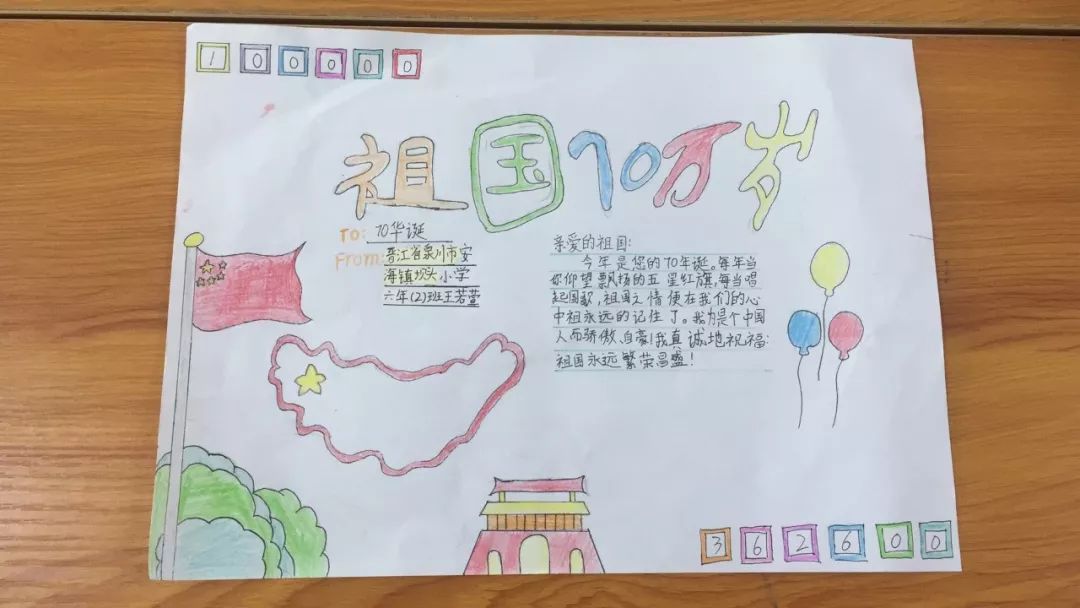 100000
祖国70万岁
To: 70华诞
From: 晋江省泉川市安
海镇坝头小学
六年(2)班王若萱
亲爱的祖国:
今年是您的70年诞。每年当
你仰望飘扬的五星红旗,每当唱
起国歌,祖国之情便在我们的心
中祖永远的记住了。我为是个中国
人而骄傲、自豪!我真诚地祝福
祖国永远繁荣昌盛!
362600